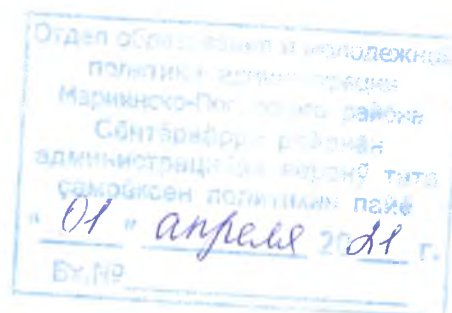 Отдел образования и молодежной
политики администрации
Мариинско-Посадского района
Сӗнтӗрвӑрри районӗн
администрацийӗн вӗренӳ тата
ҫамрӑксен политикин пайӗ
" 01 " апреля 20 21 г.
Вх.№